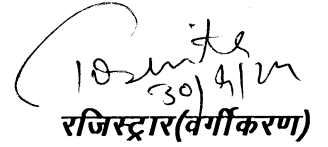 30/9/24
रजिस्ट्रार(वर्गीकरण)